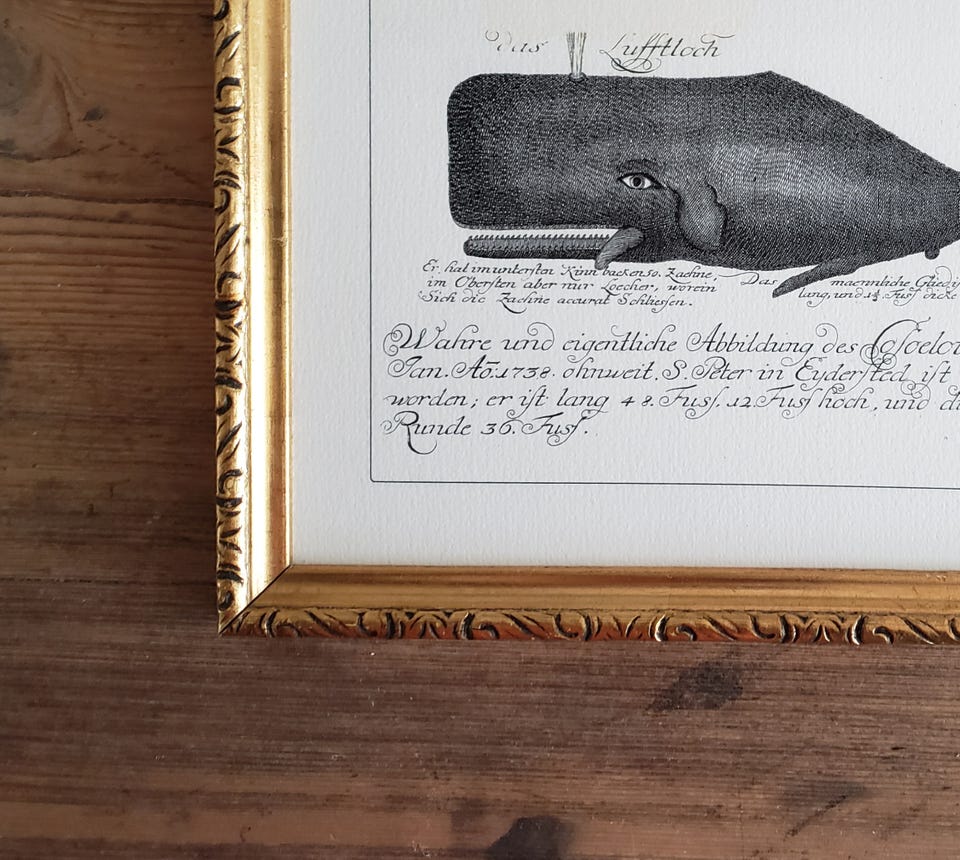 das Lufftloch
Er hat im untersten Kinn backen 50. Zaehne,
im Obersten aber nur Loecher, worein
Sich die Zaehne accurat Schliessen.
Das maennliche Glied
lang, und 1½ Fus dicke
Wahre und eigentliche Abbildung des
Jan. Ao. 1738. ohnweit S. Peter in Eydersted, ist
worden; er ist lang 48. Fuss. 12. Fuss hoch, und
Runde 36. Fuss.